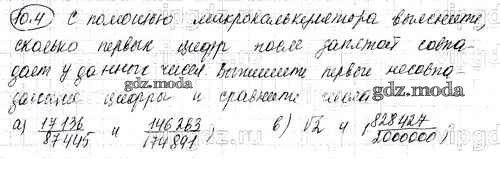 10.4 С помощью микрокалькулятора выясните,
сколько первых цифр после запятой совпа-
дает у данных чисел. Выпишите первые несовпа-
дающие цифры и сравните числа
gdz.moda
gdz.moda
а) 17136/87445 и 146263/174891; в) √2 и 1,828427/2000000;